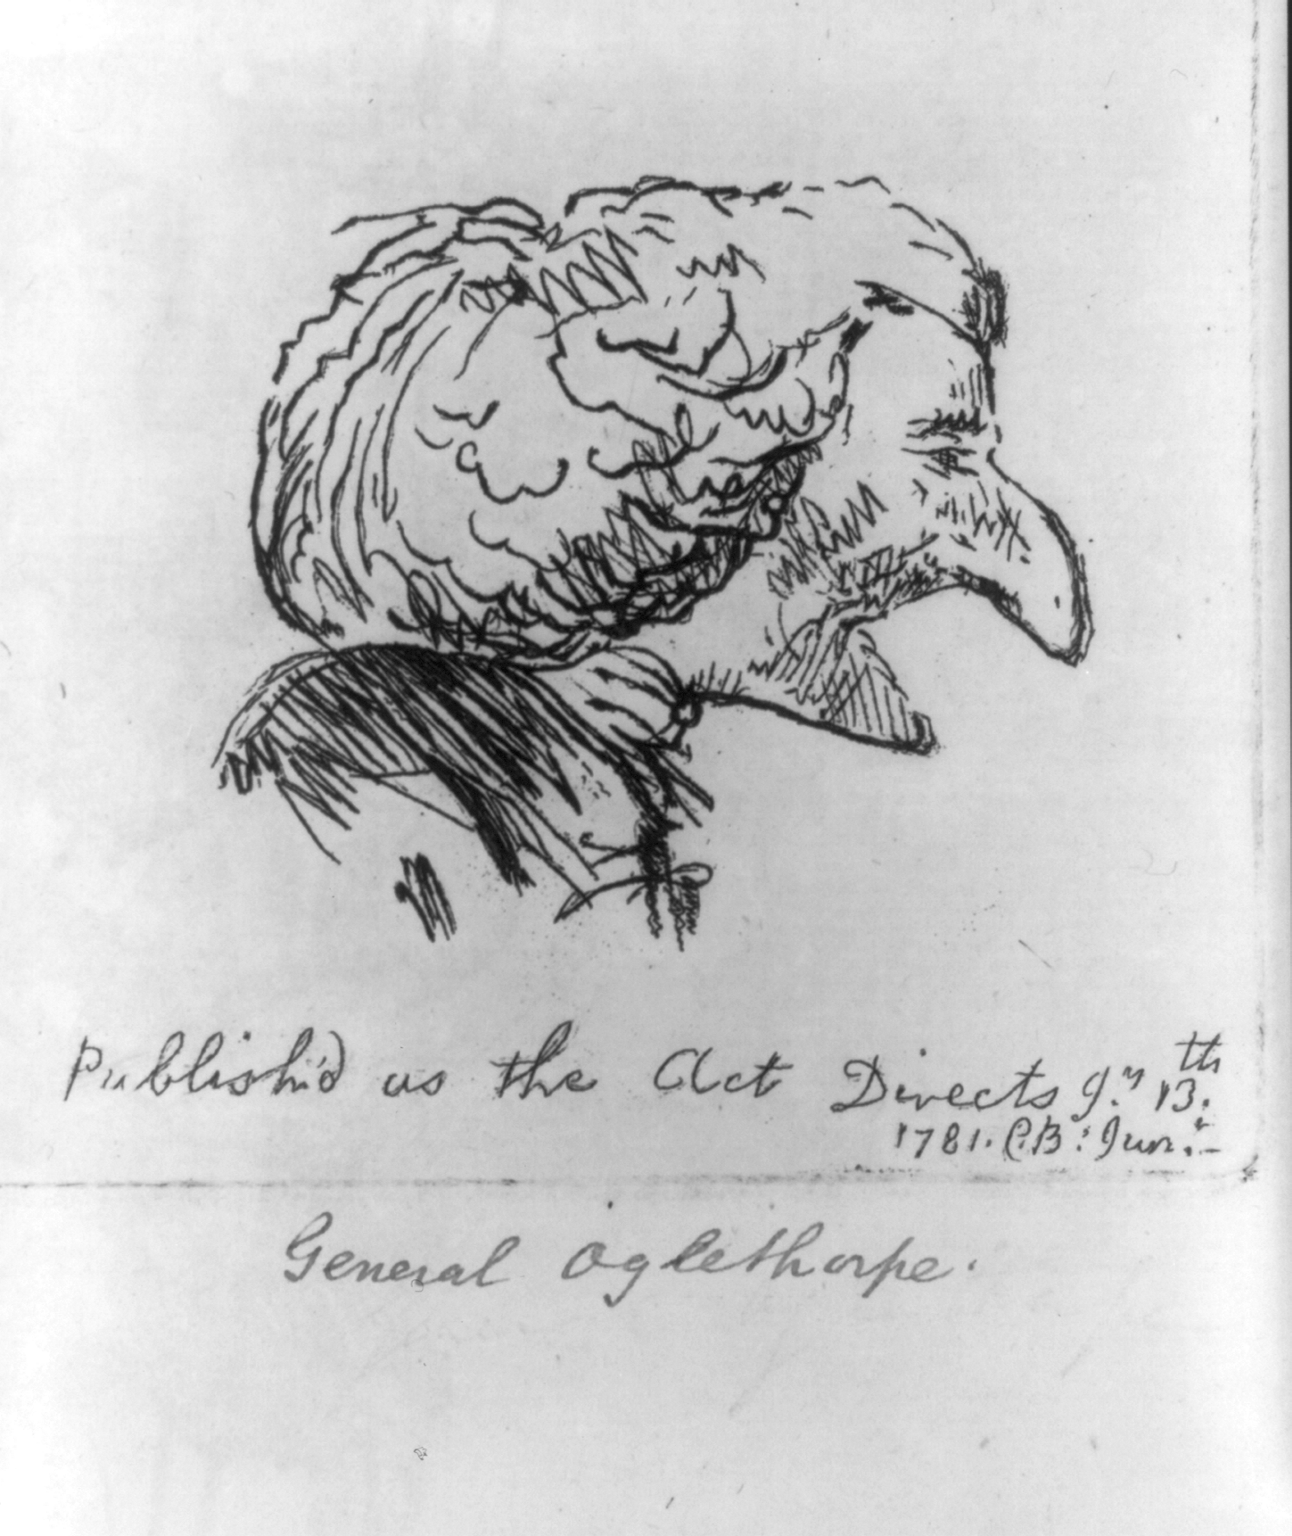 Publish'd as the Act Directs J.y 13.th
1781. C.B: Jun.r
General Oglethorpe.